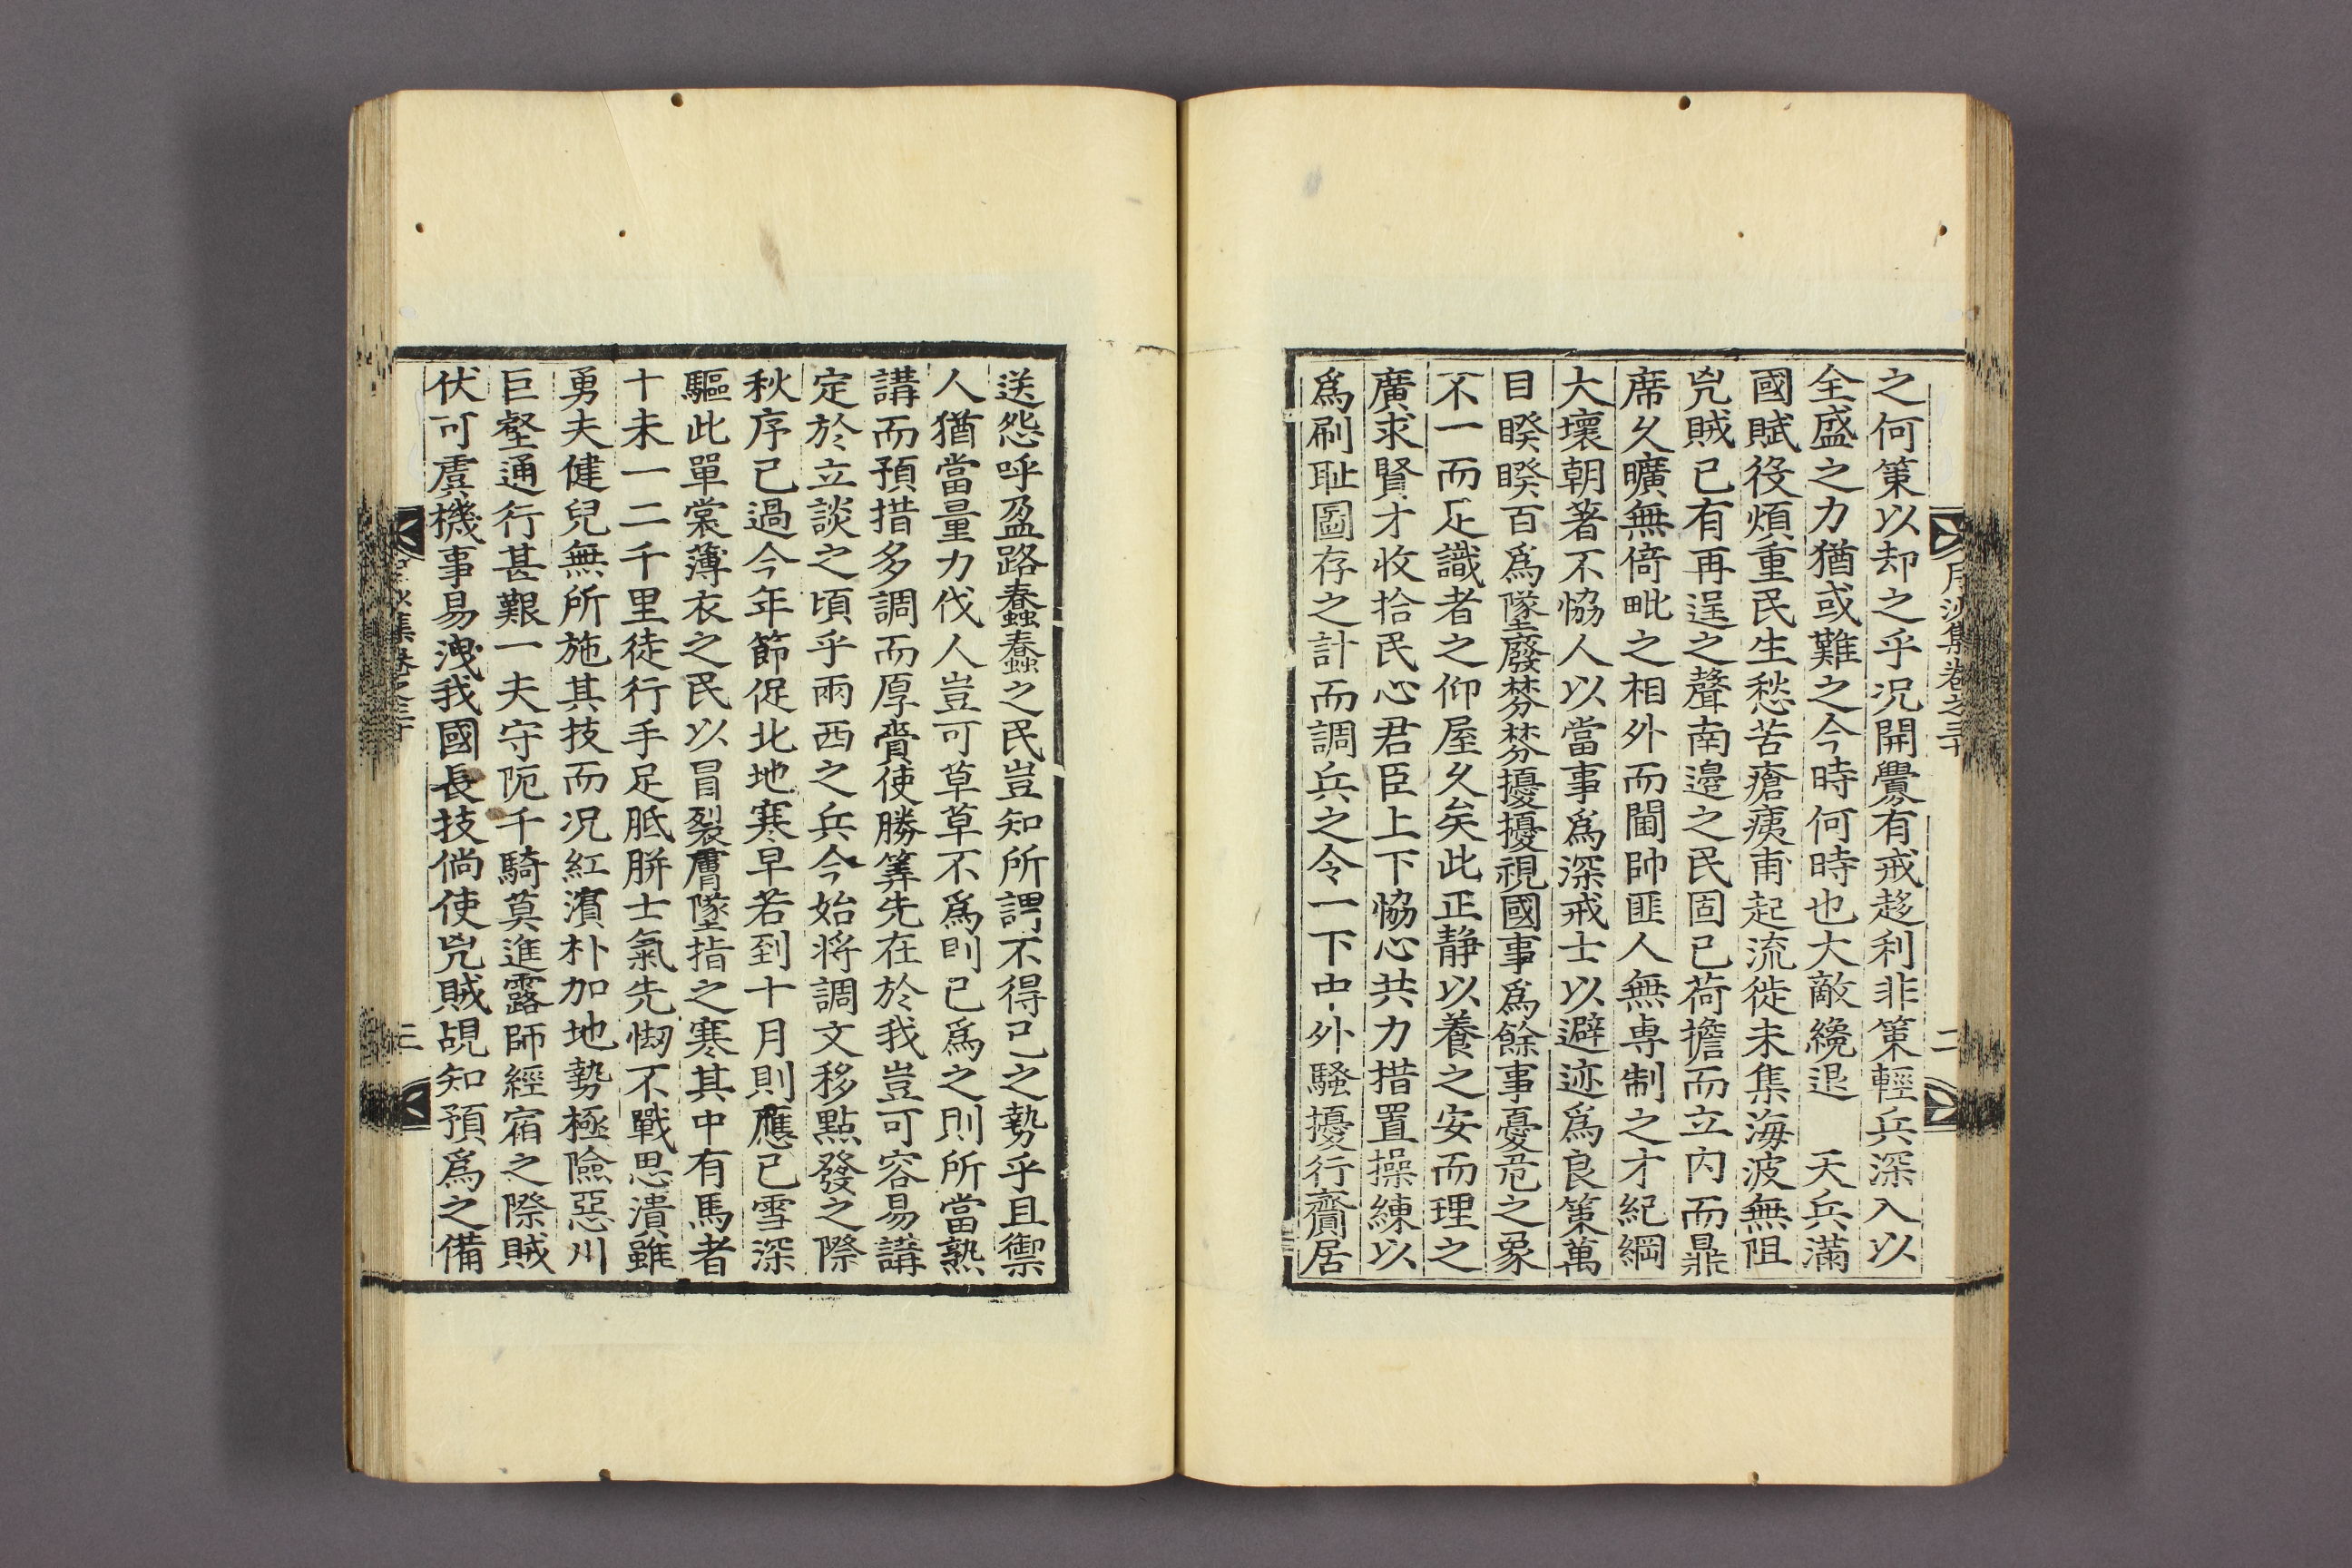 之何策以却之乎况開釁有戒趍利非策輕兵深入以
全盛之力猶或難之今時何時也大敵纔退　天兵滿
國賦役煩重民生愁苦瘡痍甫起流徙未集海波無阻
兇賊已有再逞之聲南邉之民固已荷擔而立内而鼎
席久曠無倚毗之相外而閫帥匪人無専制之才紀綱
大壞朝著不恊人以當事爲深戒士以避迹爲良策萬
目睽睽百爲墜廢棼棼擾擾視國事爲餘事憂危之象
不一而足識者之仰屋久矣此正静以養之安而理之
廣求賢才收拾民心君臣上下恊心共力措置操練以
爲刷耻圖存之計而調兵之令一下中外騷擾行齎居
送怨呼盈路蠢蠢之民豈知所謂不得已之勢乎且禦
人猶當量力伐人豈可草草不爲則已爲之則所當熟
講而預措多調而厚賫使勝筭先在於我豈可容易講
定於立談之頃乎兩西之兵今始将調文移點發之際
秋序已過今年節促北地寒早若到十月則應已雪深
驅此單裳薄衣之民以冒裂膚墜指之寒其中有馬者
十未一二千里徒行手足胝胼士氣先衂不戰思潰雖
勇夫健兒無所施其技而况紅濱朴加地勢極險惡川
巨壑通行甚艱一夫守阨千騎莫進露師經宿之際賊
伏可虞機事易洩我國長技倘使兇賊覘知預爲之備
月沙集卷之三十
二
集卷之三十
三